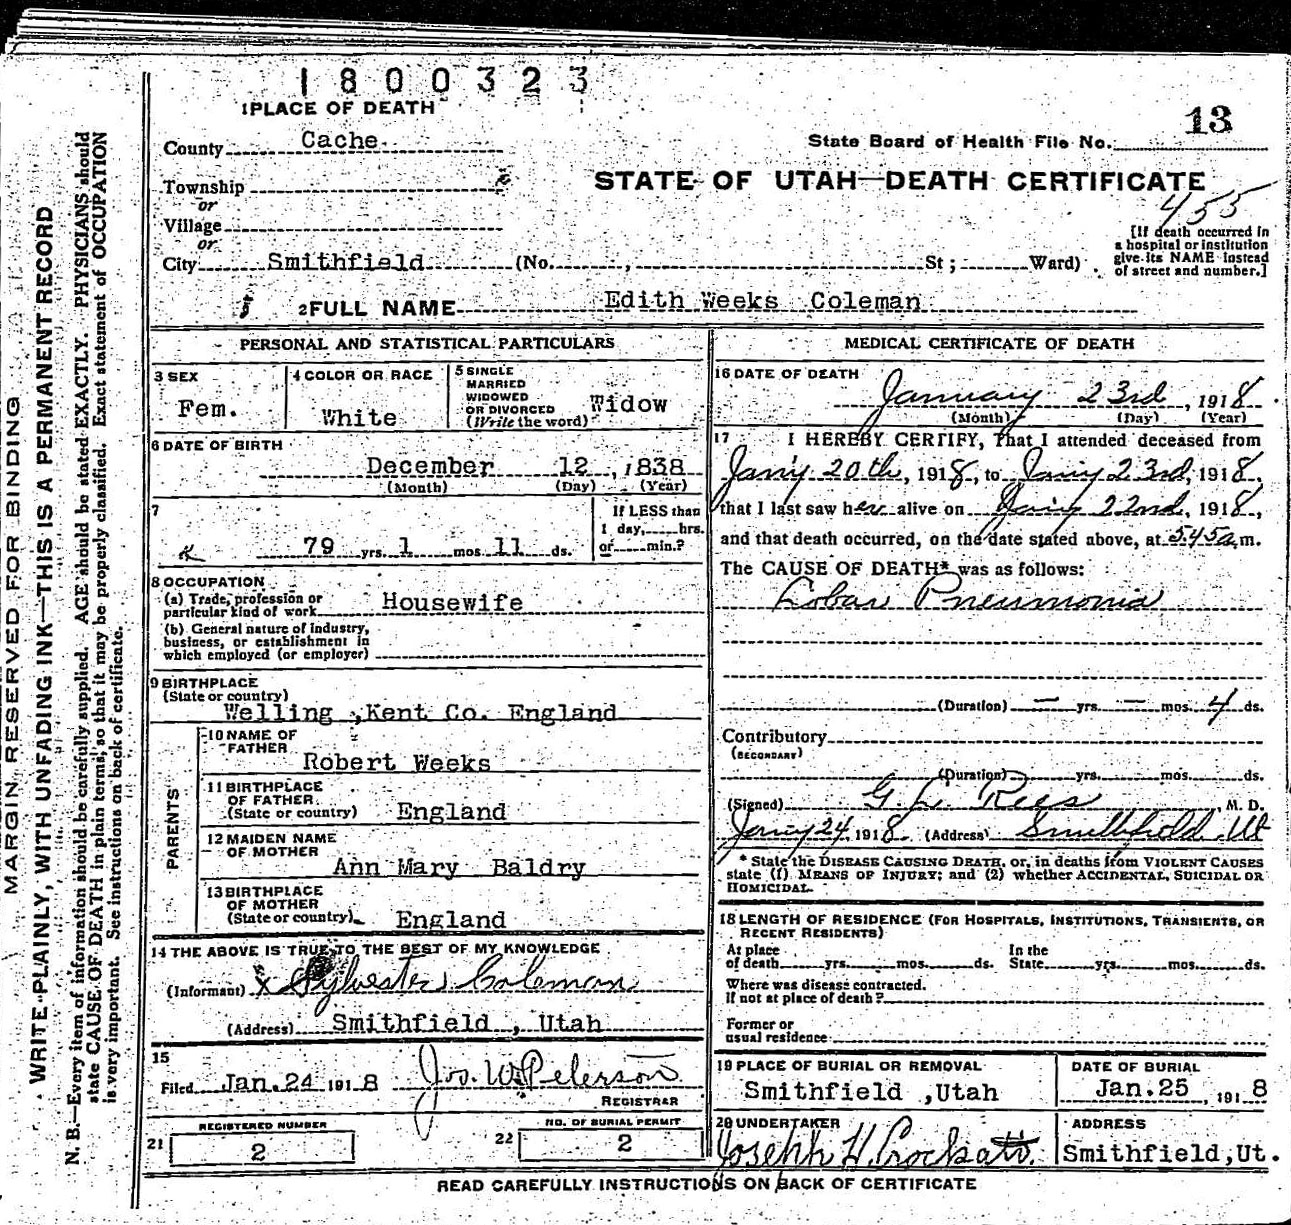 1800323
1 PLACE OF DEATH
13
County Cache
State Board of Health File No.
Township
STATE OF UTAH—DEATH CERTIFICATE
or
455
Village
[If death occurred in
a hospital or institution
give its NAME instead
of street and number.]
or
City Smithfield (No. , St; Ward)
2 FULL NAME Edith Weeks Coleman
PERSONAL AND STATISTICAL PARTICULARS
3 SEX
Fem.
4 COLOR OR RACE
White
5 SINGLE
MARRIED
WIDOWED
OR DIVORCED
(Write the word)
Widow
6 DATE OF BIRTH
December 12, 1838
(Month) (Day) (Year)
7
79 yrs. 1 mos 11 ds.
If LESS than
1 day, hrs.
or min.?
8 OCCUPATION
(a) Trade, profession or
particular kind of work Housewife
(b) General nature of industry,
business, or establishment in
which employed (or employer)
9 BIRTHPLACE
(State or country)
Welling ,Kent Co. England
PARENTS
10 NAME OF
FATHER
Robert Weeks
11 BIRTHPLACE
OF FATHER
(State or country) England
12 MAIDEN NAME
OF MOTHER
Ann Mary Baldry
13 BIRTHPLACE
OF MOTHER
(State or country) England
14 THE ABOVE IS TRUE TO THE BEST OF MY KNOWLEDGE
(Informant) X Sylvester Coleman
(Address) Smithfield , Utah
15
Filed Jan.24 1918 Jos. W. Peterson
REGISTRAR
21
REGISTERED NUMBER
2
22
NO. OF BURIAL PERMIT
2
MEDICAL CERTIFICATE OF DEATH
16 DATE OF DEATH
January 23rd, 1918
(Month) (Day) (Year)
17 I HEREBY CERTIFY, That I attended deceased from
Jan'y 20th, 1918, to Jan'y 23rd, 1918,
that I last saw her alive on Jan'y 22nd, 1918,
and that death occurred, on the date stated above, at 5.45 a.m.
The CAUSE OF DEATH* was as follows:
Lobar Pneumonia
(Duration) — yrs. — mos. 4 ds.
Contributory
(SECONDARY)
(Duration) yrs. mos. ds.
(Signed) G. L. Rees, M. D.
Jan'y 24 1918 (Address) Smithfield Ut
* State the DISEASE CAUSING DEATH, or, in deaths from VIOLENT CAUSES
state (1) MEANS OF INJURY; and (2) whether ACCIDENTAL, SUICIDAL OR
HOMICIDAL.
18 LENGTH OF RESIDENCE (FOR HOSPITALS, INSTITUTIONS, TRANSIENTS, OR
RECENT RESIDENTS)
At place
of death yrs. mos. ds.
In the
State yrs. mos. ds.
Where was disease contracted.
If not at place of death?
Former or
usual residence
19 PLACE OF BURIAL OR REMOVAL
Smithfield ,Utah
DATE OF BURIAL
Jan.25, 1918
20 UNDERTAKER
Joseph H. Crockatt.
ADDRESS
Smithfield,Ut.
READ CAREFULLY INSTRUCTIONS ON BACK OF CERTIFICATE
MARGIN RESERVED FOR BINDING
WRITE PLAINLY, WITH UNFADING INK—THIS IS A PERMANENT RECORD
N. B.—Every item of information should be carefully supplied. AGE should be stated EXACTLY. PHYSICIANS should
state CAUSE OF DEATH in plain terms, so that it may be properly classified. Exact statement of OCCUPATION
is very important. See instructions on back of certificate.